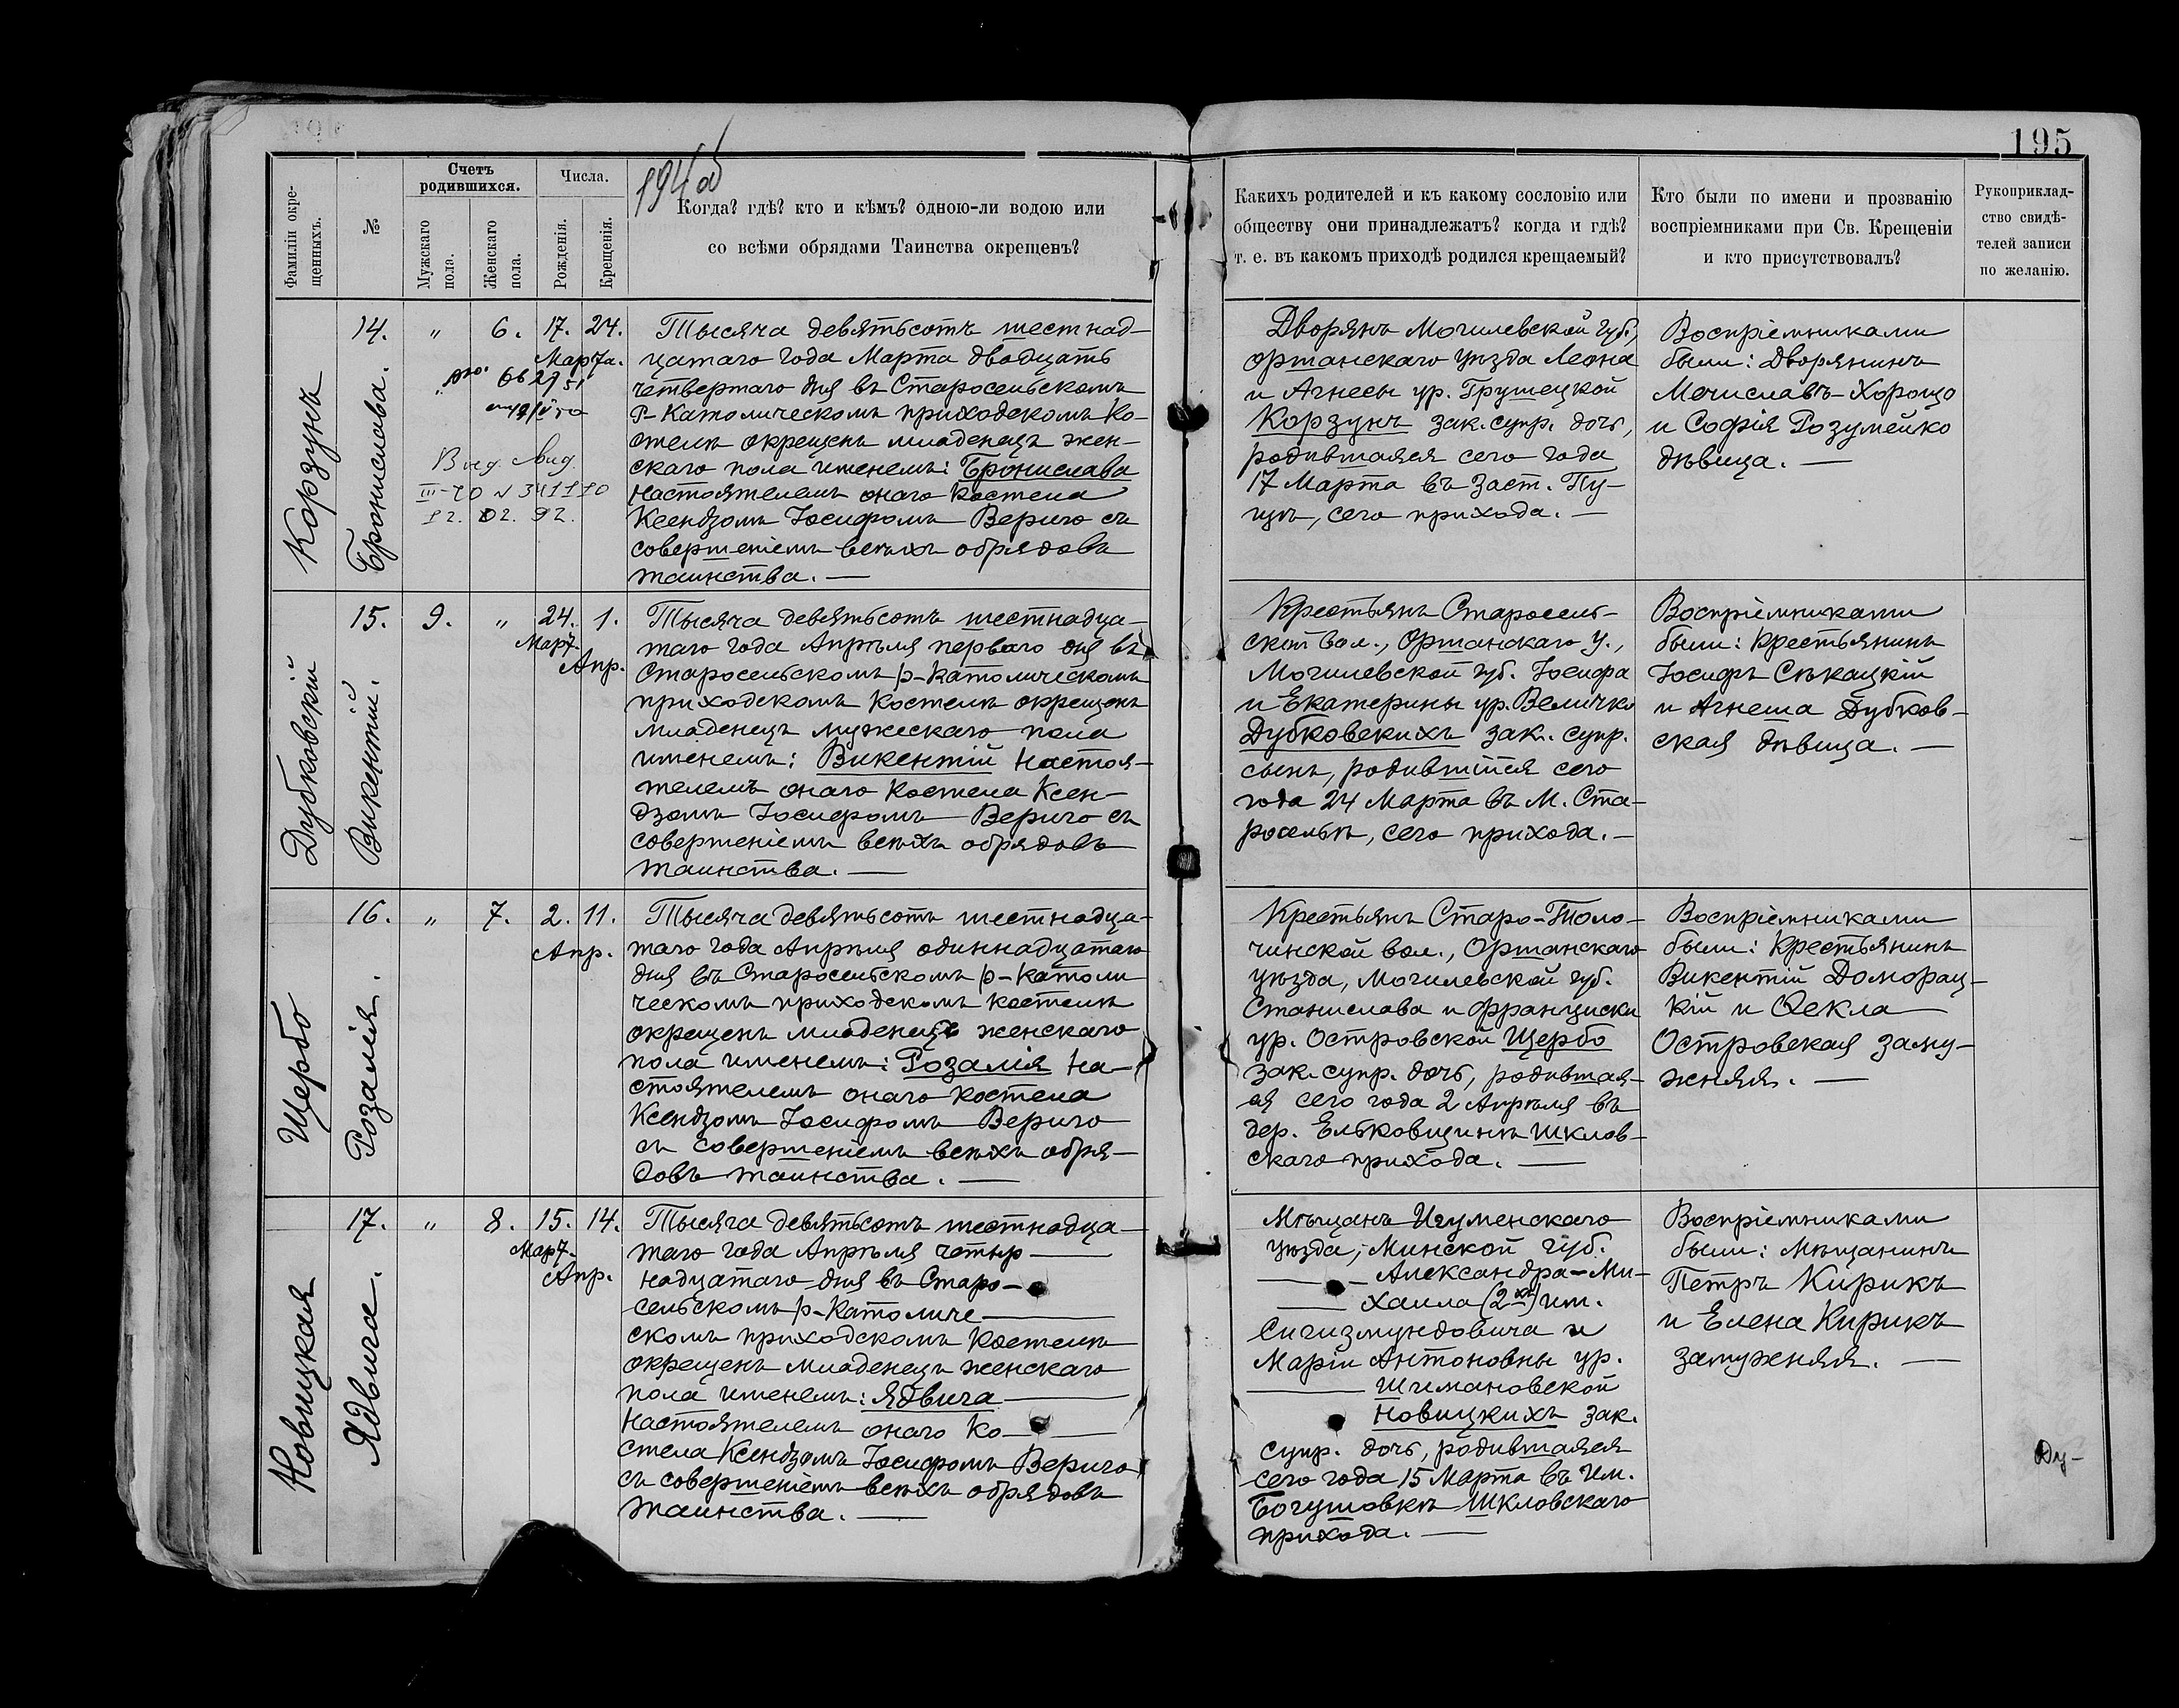 194об
195
Фамиліи окре-
щенныхъ.
№
Счетъ
родившихся.
Мужскаго
пола.
Женскаго
пола.
Числа.
Рожденія.
Крещенія.
Когда? гдѣ? кто и кѣмъ? одною-ли водою или
со всѣми обрядами Таинства окрещенъ?
Какихъ родителей и къ какому сословію или
обществу они принадлежатъ? когда и гдѣ?
т. е. въ какомъ приходѣ родился крещаемый?
Кто были по имени и прозванію
воспріемниками при Св. Крещеніи
и кто присутствовалъ?
Рукоприклад-
ство свидѣ-
телей записи
по желанію.
Корзунъ
14.
Бронислава.
" 6. 17. 24.
Марта.
Выд. свид.
III-ЧО № 341110
12. 02. 92.
Тысяча девятьсотъ шестнад-
цатаго года Марта двадцать
четвертаго дня въ Старосельскомъ
Р-Католическомъ приходскомъ Ко-
стелѣ окрещенъ младенецъ жен-
скаго пола именемъ: Бронислава
Настоятелемъ онаго Костела
Ксендзомъ Іосифомъ Вериго съ
совершеніемъ всѣхъ обрядовъ
таинства. —
Дворянъ Могилевской губ.,
оршанскаго уѣзда Леона
и Агнесы ур. Грушецкой
Корзунъ зак. супр. дочь,
родившаяся сего года
17 Марта въ заст. Пу-
щѣ, сего прихода. —
Воспріемниками
были: Дворянинъ
Мечиславъ Хорощо
и Софія Розумейко
дѣвица. —
Дубковскій
15.
Викентій.
9. " 24. 1.
Март.
Апр.
Тысяча девятьсотъ шестнадца-
таго года Апрѣля перваго дня въ
Старосельскомъ р-католическомъ
приходскомъ Костелѣ окрещенъ
младенецъ мужескаго пола
именемъ: Викентій Настоя-
телемъ онаго Костела Ксен-
дзомъ Іосифомъ Вериго съ
совершеніемъ всѣхъ обрядовъ
таинства. —
Крестьянъ Старосель-
ской вол., Оршанскаго у.,
Могилевской губ. Іосифа
и Екатерины ур. Величко
Дубковскихъ зак. супр.
сынъ, родившійся сего
года 24 Марта въ М. Ста-
росельѣ, сего прихода. —
Воспріемниками
были: Крестьянинъ
Іосифъ Сѣкацкій
и Агнеша Дубков-
ская дѣвица. —
Щербо
16.
Розалія.
" 7. 2. 11.
Апр.
Тысяча девятьсотъ шестнадца-
таго года Апрѣля одиннадцатаго
дня въ Старосельскомъ р-католи
ческомъ приходскомъ костелѣ
окрещенъ младенецъ женскаго
пола именемъ: Розалія На-
стоятелемъ онаго Костела
Ксендзомъ Іосифомъ Вериго
съ совершеніемъ всѣхъ обря-
довъ таинства. —
Крестьянъ Старо-Толо-
чинской вол., Оршанскаго
уѣзда, Могилевской губ.
Станислава и Франциски
ур. Островской Щербо
зак. супр. дочь, родившая-
ся сего года 2 Апрѣля въ
дер. Ельковщинѣ Шклов-
скаго прихода. —
Воспріемниками
были: Крестьянинъ
Викентій Доморац-
кій и Ѳекла
Островская заму-
жняя. —
Новицкая
17.
Ядвига.
" 8. 15. 14.
Март.
Апр.
Тысяча девятьсотъ шестнадца-
таго года Апрѣля четыр —
надцатаго дня въ Старо-
сельскомъ р-Католиче —
скомъ приходскомъ Костелѣ
окрещенъ младенецъ женскаго
пола именемъ: Ядвига —
Настоятелемъ онаго Ко-
стела Ксендзомъ Іосифомъ Вериго
съ совершеніемъ всѣхъ обрядовъ
таинства. —
Мѣщанъ Игуменскаго
уѣзда, Минской губ.
— Александра-Ми-
— хаила (2хъ) им.
Сигизмундовича и
Маріи Антоновны ур.
— Шимановской
Новицкихъ зак.
супр. дочь, родившаяся
сего года 15 Марта въ Им.
Богушовкѣ Шкловскаго
прихода. —
Воспріемниками
были: Мѣщанинъ
Петръ Кирикъ
и Елена Кирикъ
замужняя. —
Ду-